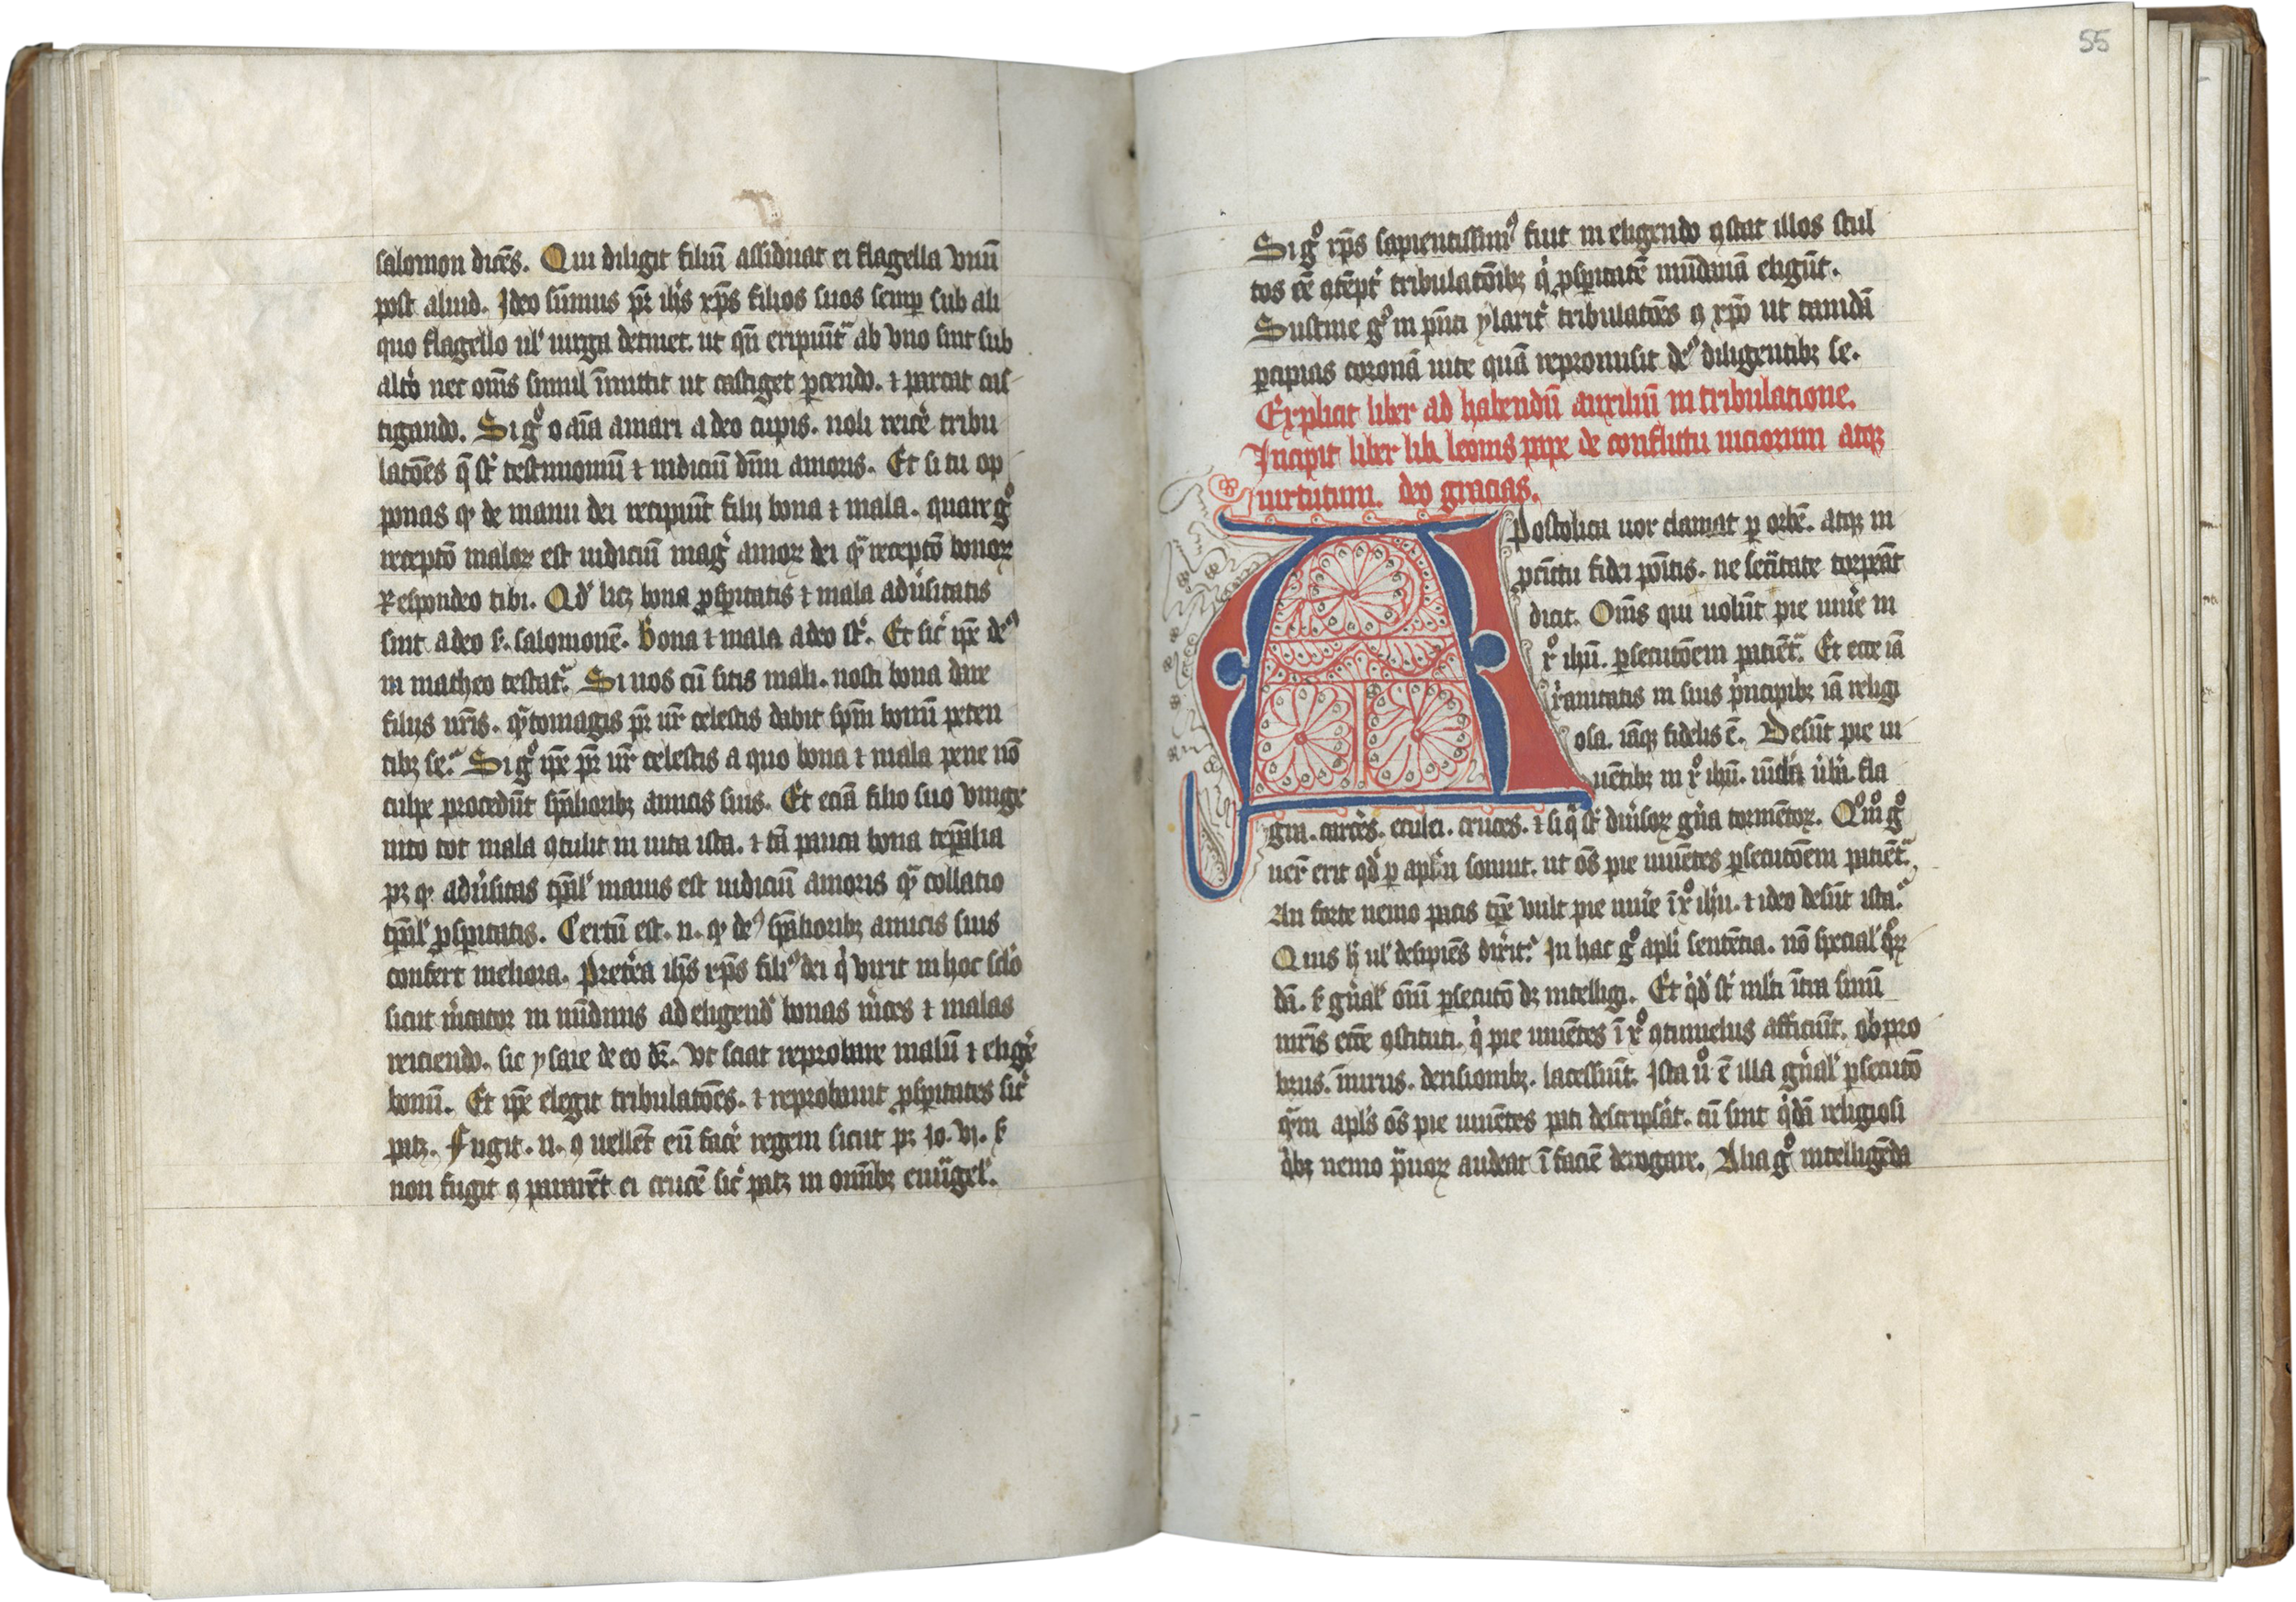 salomon dicēs. Qui diligit filiū assiduat ei flagella vnū
post aliud. Ideo sūmus pr̄ ih̄s xp̄s filios suos semp sub ali
quo flagello ul' uirga detinet. ut qn̄ eripiūt᷑ ab vno sint sub
alio nec om̄s simul īmittit ut castiget parcendo. ⁊ parcat cas
tigando. Si gͦ o aīa amari a deo cupis. noli reicē tribu
latōes q̄ st̄ testimoniū ⁊ indiciū diui amoris. Et si tu op
ponas qꝫ de manu dei recipiūt filij bona ⁊ mala. quare gͦ
receptō maloꝝ est iudiciū mag̾ amoꝝ dei qᷓ receptō bonoꝝ
Respondeo tibi. Qd̾ licꝫ bona ꝓspitatis ⁊ mala adūsitatis
sint a deo s. salomonē. Bona ⁊ mala a deo st̄. Et sic̄ ip̄e deꝰ
in matheo testat᷑. Si uos cū sitis mali. nosti bona dare
filijs ur̄is. qᷓtomagis pr̄ ur̄ celestis dabit sp̄m bonū peten
tibꝫ se. Si gͦ ip̄e pr̄ ur̄ celestis a quo bona ⁊ mala pene nō
culpe procedūt sp̄alioribꝫ amicis suis. Et eciā filio suo vnige
nito tot mala ꝯtulit in uita ista. ⁊ tā pauca bona tep̄alia
pꝫ qꝫ adūsitas tp̄al' maius est iudiciū amoris qᷓ collatio
tp̄al' ꝓspitatis. Certū est. n. qꝫ deꝰ sp̄alioribꝫ amicis suis
confert meliora. Pretēa ih̄s xp̄s filiꝰ dei q̇ vixit in hoc sclō
sicut m̄cator in nūdinis ad eligend' bonas m̄ces ⁊ malas
reiciendo. sic ysaie de eo dr̄. Vt sciat reprobare malū ⁊ eligē
bonū. Et ip̄e elegit tribulatōes. ⁊ reprobauit ꝓspitates sic̄
patꝫ. Fugit. n. ꝯ uellēt eū facē regem sicut pꝫ Io. vj. s
non fugit ꝯ pararēt ei crucē sic̄ patꝫ in om̄ibꝫ euāgel'.
Si gͦ xp̄s sapientissimꝰ fuit in eligendo ꝯstat illos stul
tos eē ꝯtēpt̄ tribulatōibꝫ q̇ ꝓspitatē mūdanā eligūt.
Sustine gͦ in p̄nti ylarit̄ tribulatōes ꝯ xp̄o ut tandē
percipias coronā uite quā repromisit deꝰ diligentibꝫ se.
Explicit liber ad habendū auxiliū in tribulatione.
Incipit liber lib leonis pape de conflictu uiciorum atqꝫ
uirtutum. deo gracias.
Apostolica uox clamat p orbē. atqꝫ in
procīctu fidei pōitis. ne secūitate torpeāt
dicit. Om̄s qui uolūt pie uiuē in
xͦ ihū. psecutōem patiēt᷑. Et ecce iā
xianitatis in suis p̄ncipibꝫ iā religi
osa. iāqꝫ fidelis ē. Desūt pie ui
uētibꝫ in xͦ ihū. uincla ūba fla
gra. carcēs. eculei. cruces. ⁊ si q̄ st̄ diūsoꝝ gn̄a tormētoꝝ. Qͦm̄ gͦ
uer̄ erit qd̾ p apl'm sonuit. ut om̄s pie uiuētes psecutōem patiēt᷑.
An forte nemo pacis tp̄e vult pie uiuē ī xͦ ihū. ⁊ ideo desūt ista.
Quis h̄ ul' desipiēs dixit. In hac gͦ apl'i sentētia. nō special' q̄rū
dā. s gn̄al' om̄iū psecutō dꝫ intelligi. Et q̇d̾ st̄ ml'ti īta sinū
mr̄is ecc̄e ꝯstituti. q̇ pie uiuētes ī xͦ ꝯtumeliis afficiūt. obpro
briis. īiuriis. derisionibꝫ. lacessiūt. Ista ūͦ ē illa gn̄al' psecutō
q̄m apl's om̄s pie uiuētes pati descripsit. cū sint q̇dā religiosi
q̇bꝫ nemo p̄uoꝝ audeat ī faciē derogare. Alia gͦ intelligēda
55